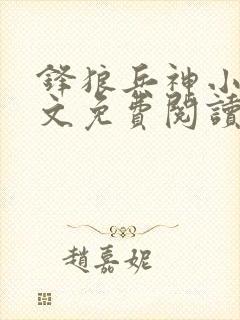 鋒狼兵神小
文免費閱讀
趙嘉妮